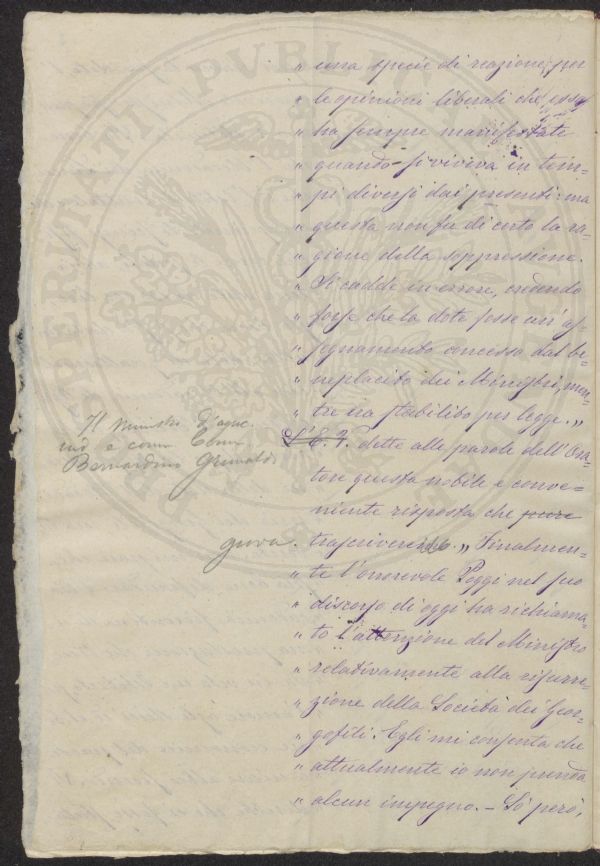 " una specie di reazione, per
" le opinioni liberali che essa
" ha sempre manifestate
" quando si viviva in tem-
" pi diversi dai presenti: ma
" questa non fu di certo la ra-
" gione della soppressione.
" Si cadde in errore, credendo
" forse che la dote fosse un'as-
" segnamento concesso dal be-
" neplacito dei Ministri, men-
" tre era stabilito per legge. "
Il Ministro d'agric.
ind e com
Bernardino Grimaldi
L'E. V. dette alle parole dell'Ora-
tore questa nobile e conve-
niente risposta che
giova.
trascrivere. " Finalmen-
" te l'onorevole Poggi nel suo
" discorso di oggi ha richiama-
" to l'attenzione del Ministro
" relativamente alla risurre-
" zione della Società dei Geor-
" gofili. Egli mi consenta che
" attualmente io non prenda
" alcun impegno. – So però,
PROSPERITATI PUBLICAE